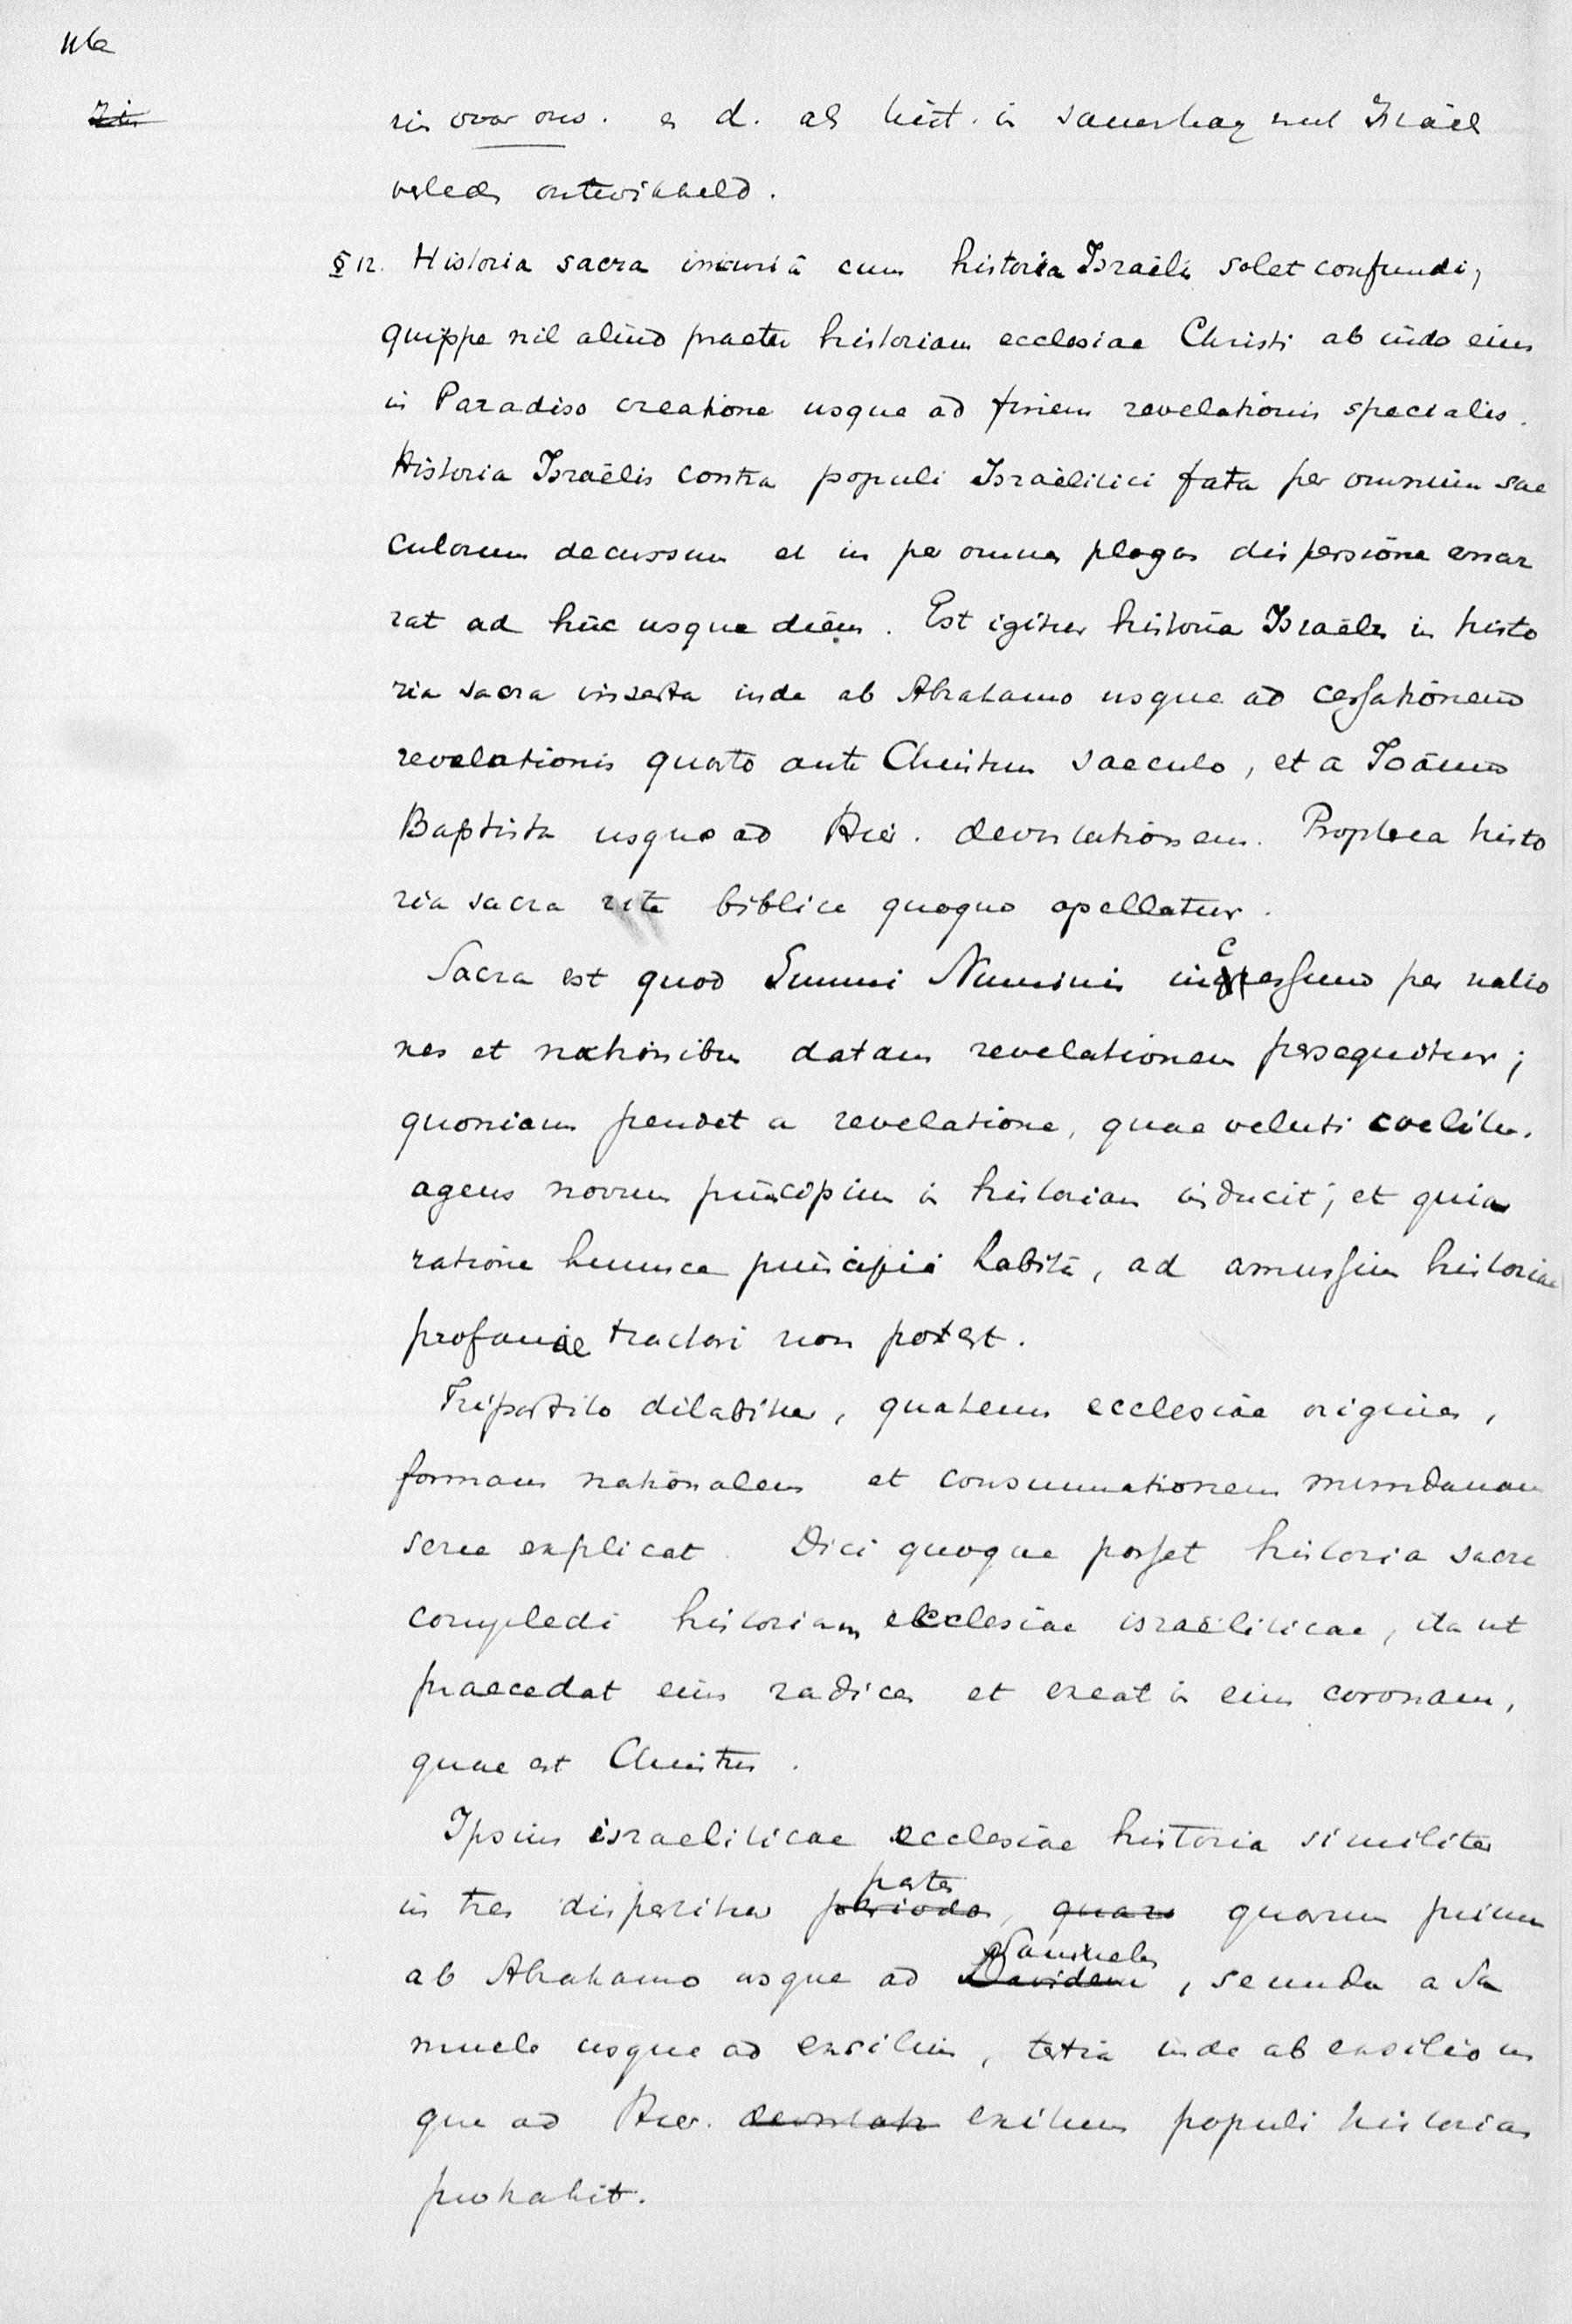 116
zin
zin voor ons. en d. als hist. in samenhang met Israël
verleden ontwikkeld.
§ 12. Historia sacra iniuriâ cum historia Israëlis solet confundi,
quippe nil aliud praeter historiam ecclesiae Christi ab inde eius
in Paradiso creatione usque ad finem revelationis specialis.
Historia Israëlis contra populi Israëlitici fata per omnium sae
culorum decursum et in per omnes plagas dispersione enar
rat ad hunc usque diem. Est igitur historia Israëlis in histo
ria sacra inserta inde ab Abrahamo usque ad cessationem
revelationis quarto ante Christum saeculo, et a Joanne
Baptista usque ad Hier. devastationem. Propterea histo
ria sacra rite biblica quoque apellatur.
Sacra est quod Summi Numinis incessum per natio
nes et nationibus datam revelationem persequitur;
quoniam pendet a revelatione, quae veluti coelitus
agens novum principium in historiam inducit; et quia
ratione huiusce principii habitâ, ad amussim historiae
profanae tractari non potest.
Tripartito dilabitur, quatenus ecclesiae origines,
formam nationalem et consummationem mundanam
serie explicat. Dici quoque posset historia sacra
complecti historiam ecclesiae israëliticae, ita ut
praecedat eius radices et exeat in eius coronam,
quae est Christus.
Ipsius israeliticae ecclesiae historia similiter
in tres dispertitur periodos, partes quare quarum prima
ab Abrahamo usque ad Davidem Samuelem, secunda a Sa
muele usque ad exsilium, tertia inde ab exsilio us
que ad Hier. devastati exitum populi historiam
protrahit.